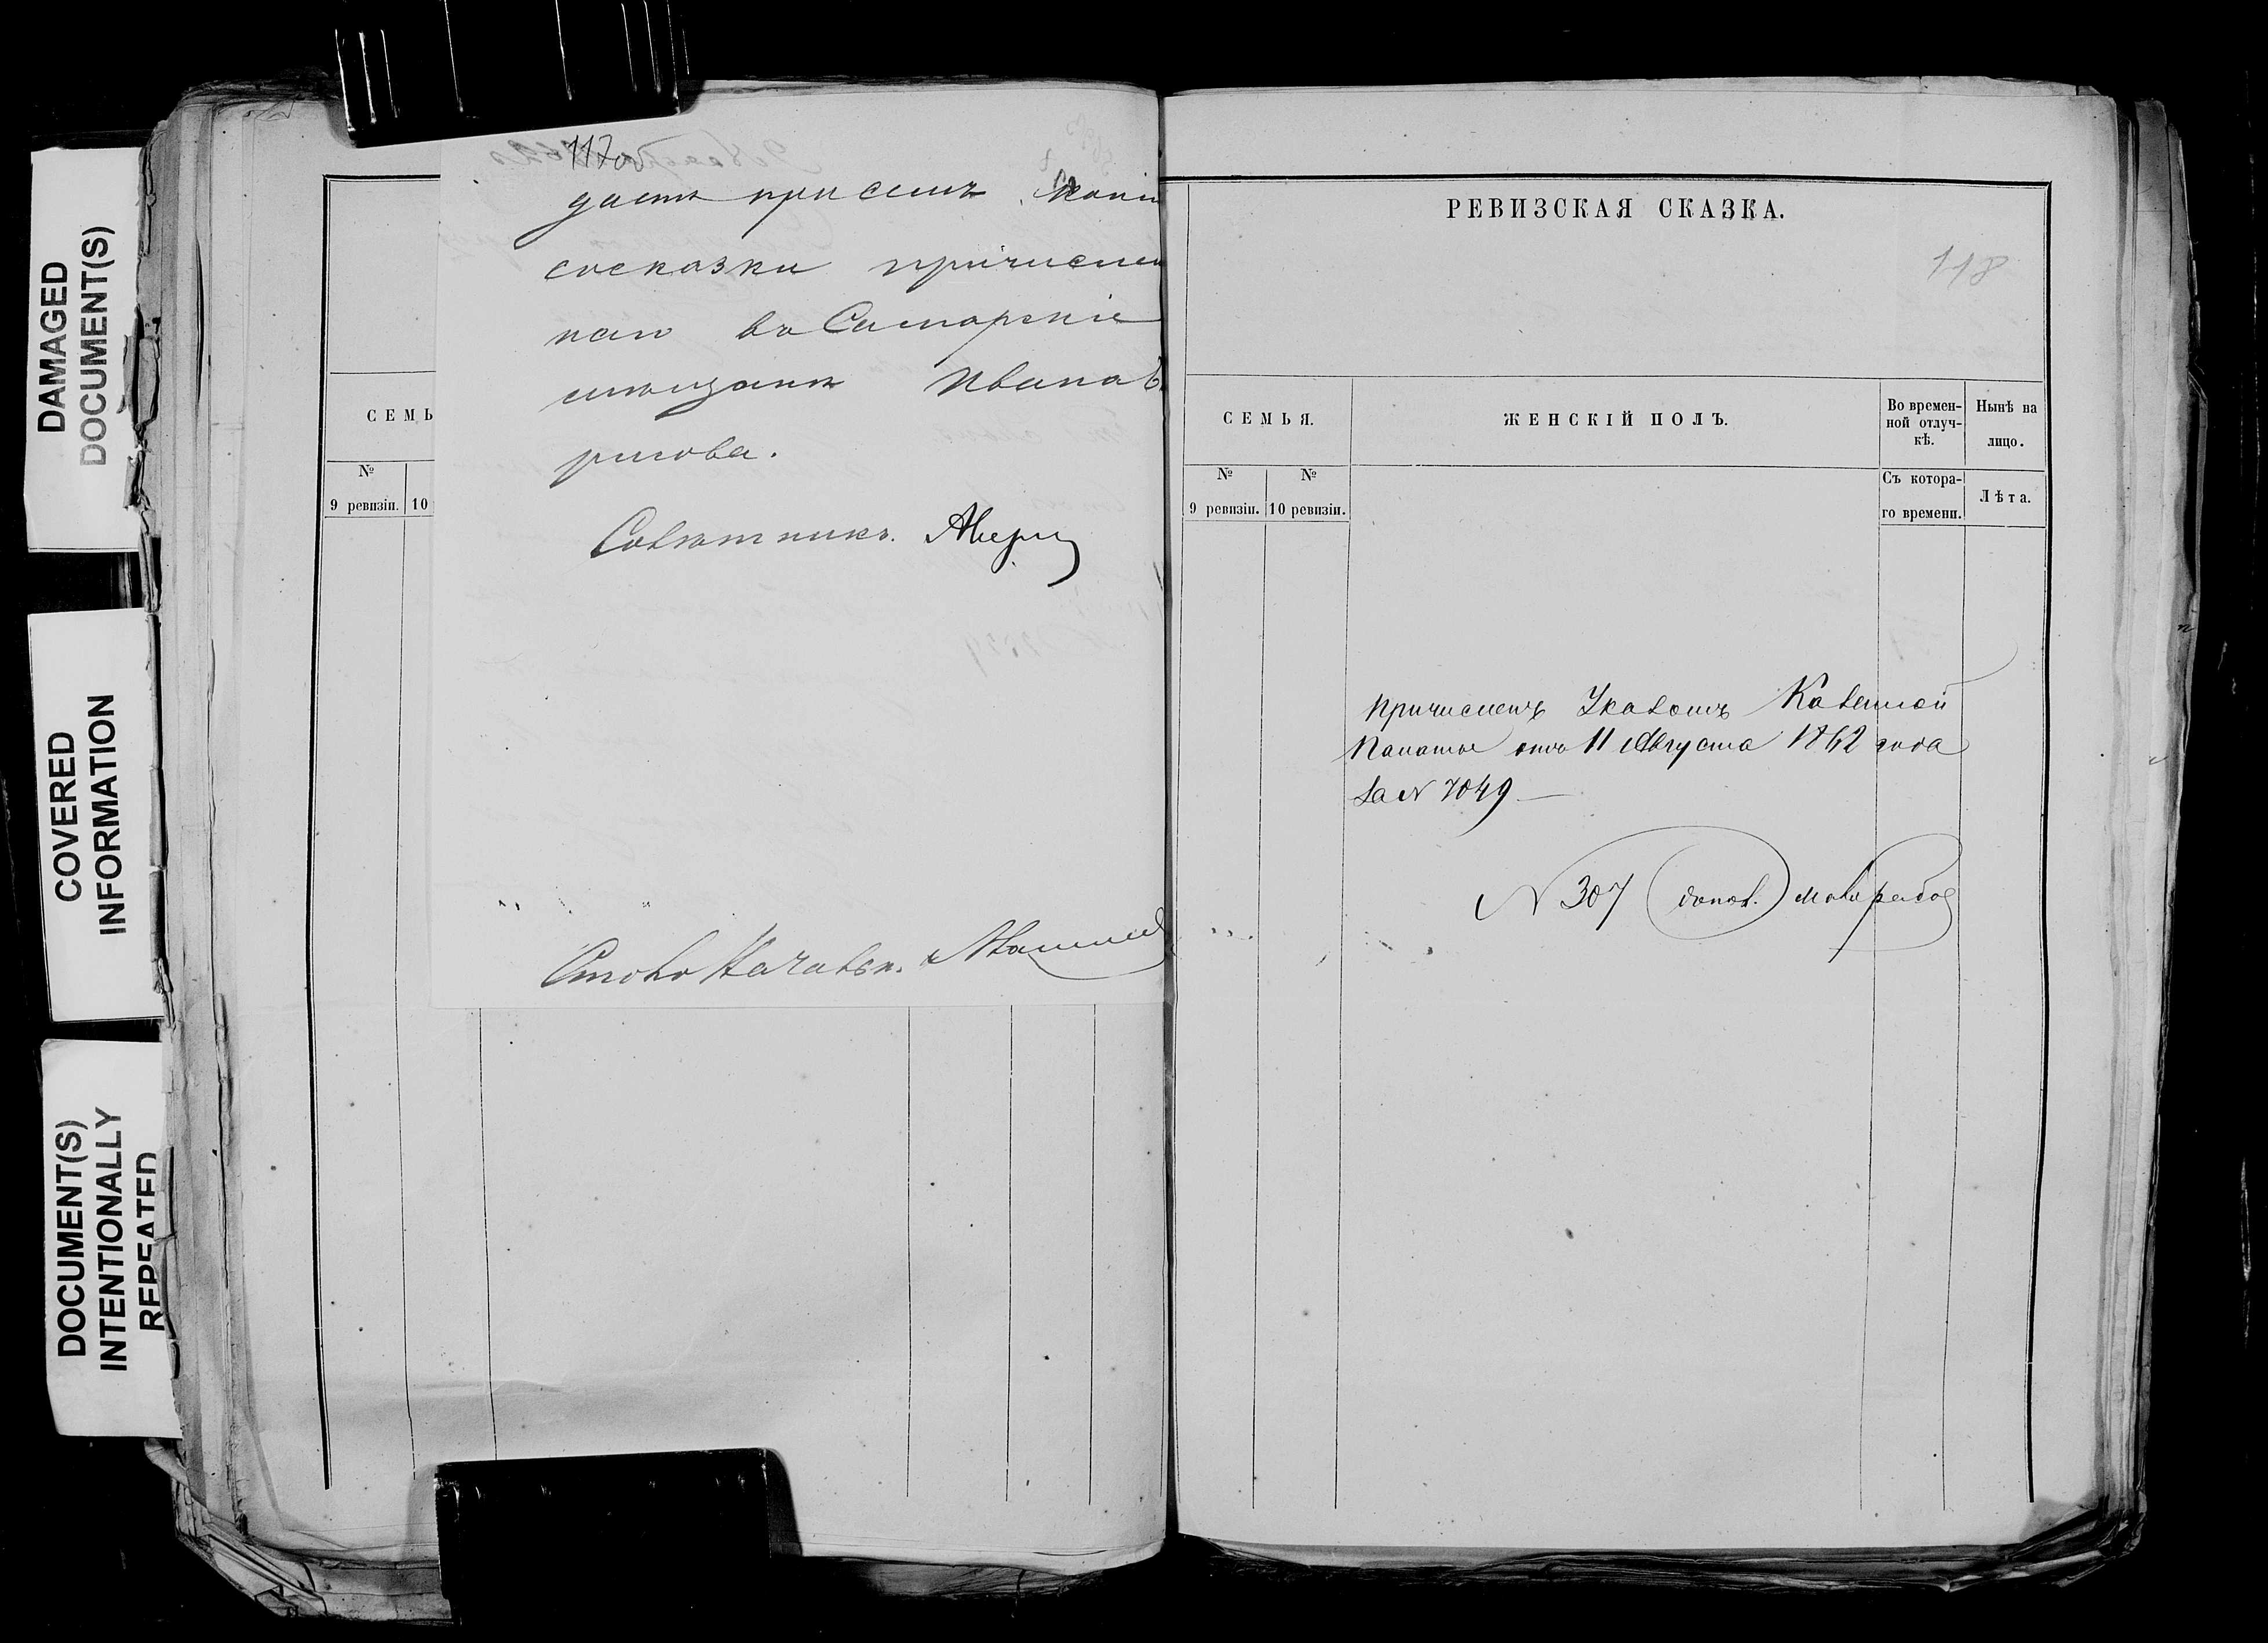 DAMAGED
DOCUMENT(S)
COVERED
INFORMATION
DOCUMENT(S)
INTENTIONALLY
REPEATED
117об
даетъ при семъ копі
съ сказки причислен
наго въ Самарскіе
мещане Иванав
рисова.
Советникъ.
СЕМЬ
№
9 ревизіи. 10
Столо Начальн.
РЕВИЗСКАЯ СКАЗКА.
118
СЕМЬЯ.
ЖЕНСКІЙ ПОЛЪ.
Во времен-
ной отлуч-
кѣ.
Нынѣ на
лицо.
№ №
9 ревизіи. 10 ревизіи.
Съ котора-
го времени.
Лѣта.
Причисленъ Указомъ Казенной
Палаты отъ 11 Августа 1862 года
за № 7049 —
N 307